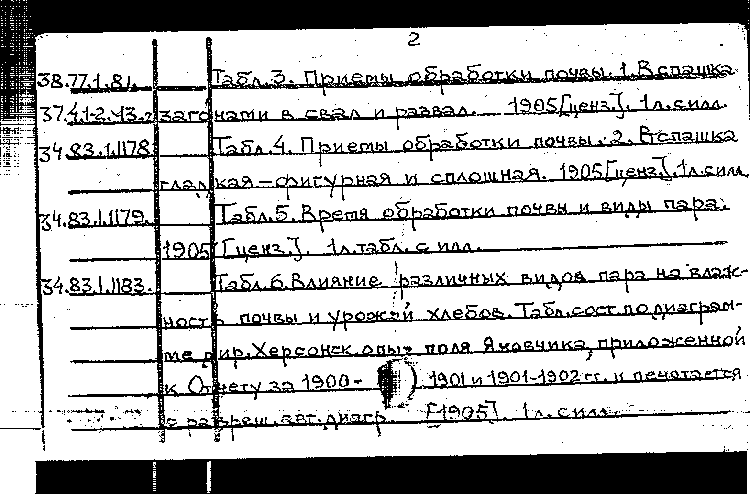 2
38.77.1.81. Табл.3. Приемы обработки почвы. 1. Вспашка
37.4.1-2.43.2 загонами в свал и развал. 1905 [ценз.]. 1 л. с илл.
34.83.1.1178 Табл.4. Приемы обработки почвы. 2. Вспашка
гладкая-фигурная и сплошная. 1905 [ценз.]. 1 л. с илл.
34.83.1.1179. Табл.5. Время обработки почвы и виды пара.
1905 [ценз.]. 1 л. табл. с илл.
34.83.1.1183. Табл.6. Влияние различных видов пара на влаж-
ность почвы и урожай хлебов. Табл. сост. по диаграм-
ме дир. Херсонск. опыт. поля Яновчика, приложенной
к Отчету за 1900- 1901 и 1901-1902 гг. и печатается
с разреш. авт. диагр. [1905]. 1 л. с илл.